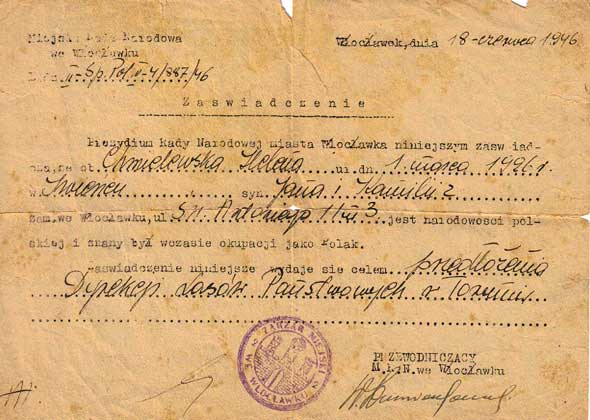 Miejska Rady Narodowa
we Włocławku
Włocławek, dnia 18-czerwca 1946
L.dz. II-Sp.Pol.IV-4/887/46
Zaświadczenie
Prezydium Rady Narodowej miasta Włocławka niniejszym zaświad-
cza, że ob. Chmielewska Helena ur. dn. 1. marca 1926 r.
w syn. Jana i Kamilii z
zam. we Włocławku, ul. Św. Antoniego 3 jest narodowości pol-
skiej i znany był wczasie okupacji jako Polak.
Zaświadczenie niniejsze wydaje sie celem przedłożenia
Dyrekcji Lasów Państwowych w Toruniu
ZARZĄD MIEJSKI
WE WŁOCŁAWKU
PRZEWODNICZĄCY
M.R.N. we Włocławku